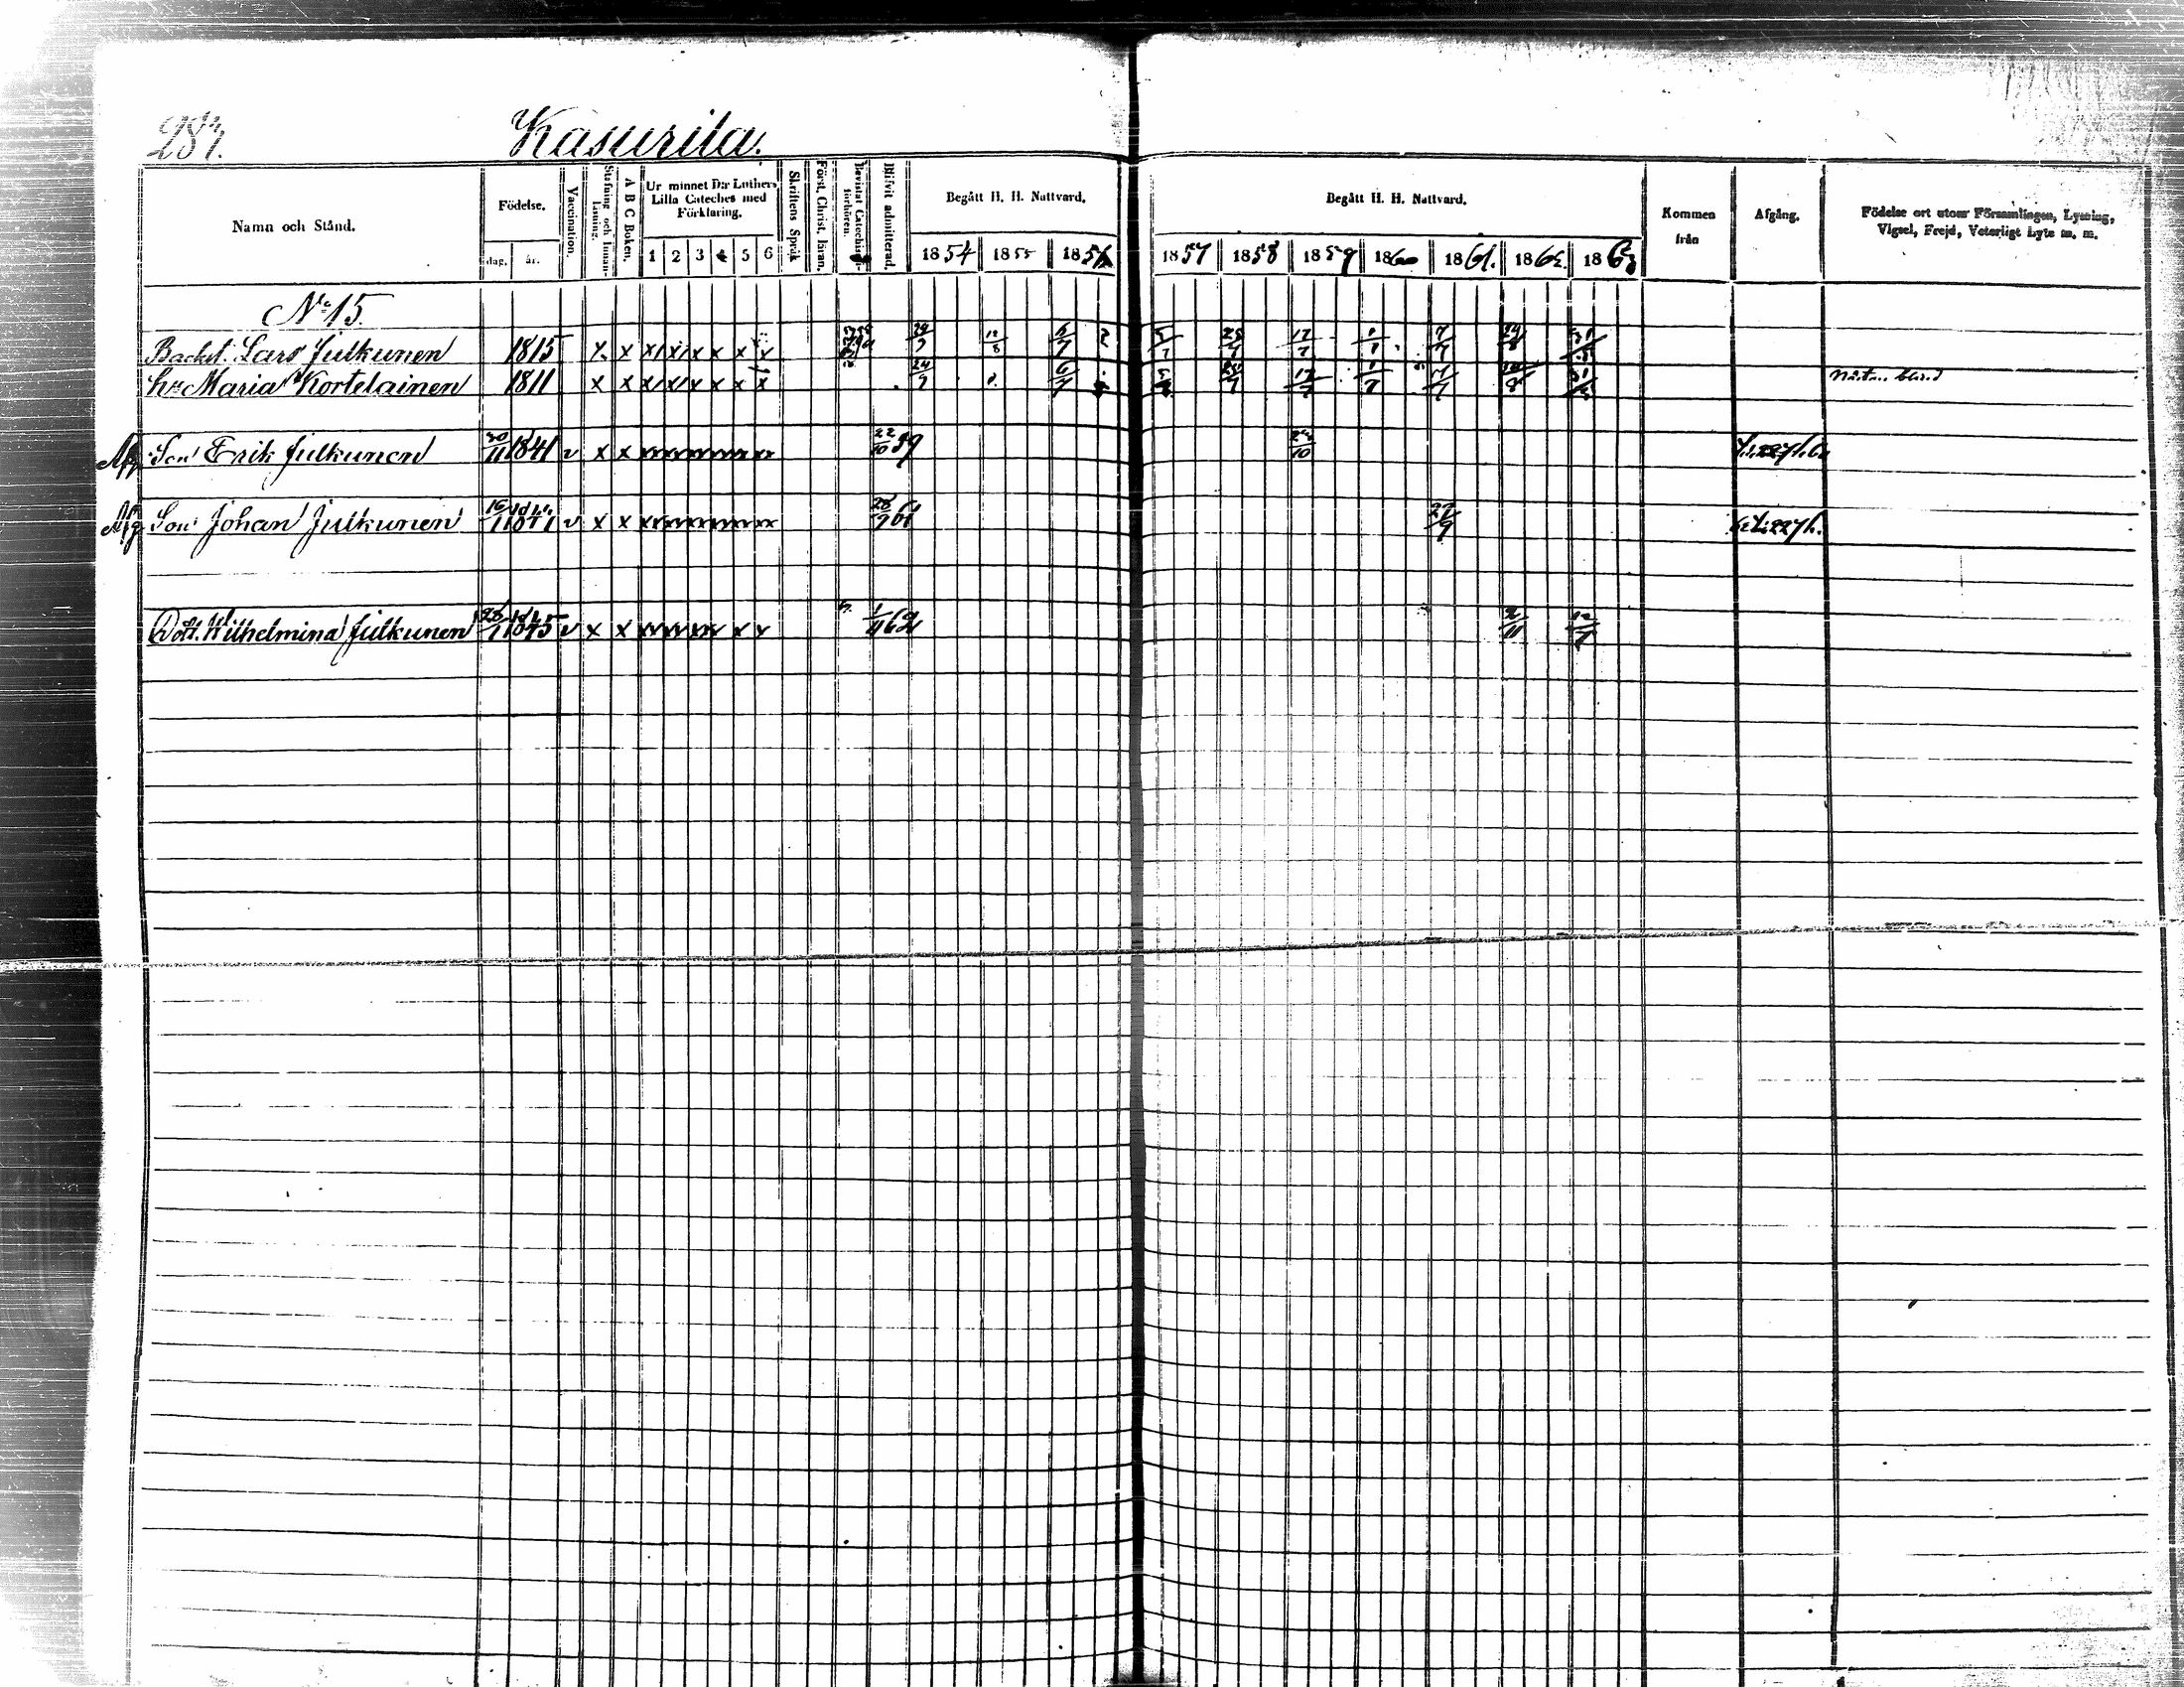 287. Kasurila.
Namn och Stånd. Födelse. dag. år. Vaccination. Stafning och Innanläsning. A B C Boken. Ur minnet D:r Luthers Lilla Cateches med Förklaring. 1 2 3 4 5 6 Skriftens Språk Först. Christ. läran. Bevistat Catechismiförhören. Blifvit admitterad. Begått H. H. Nattvard. 1854 1855 1856 Begått H. H. Nattvard. 1857 1858 1859 1860 1861. 1862. 1863 Kommen från Afgång. Födelse ort utom Församlingen, Lysning, Vigsel, Frejd, Veterligt Lyte m. m.
No 15.
Backst. Lars Julkunen 1815 x x x x x x x x 24/7 12/8 6/7 5/7 25/7 17/7 1/7 7/7 24/8 31/5
Hu Maria Kortelainen 1811 x x x x x x x x 24/7 6/7 5/7 25/7 17/7 1/7 7/7 24/8 31/5
Afg Son Erik Julkunen 30/11 1841 v x x 22/10 59 23/10
Afg Son Johan Julkunen 16/1 v x x 28/9 61 27/9
Dott. Wilhelmina Julkunen 28/1 1845 v x x 1/11 62 2/11 12/7